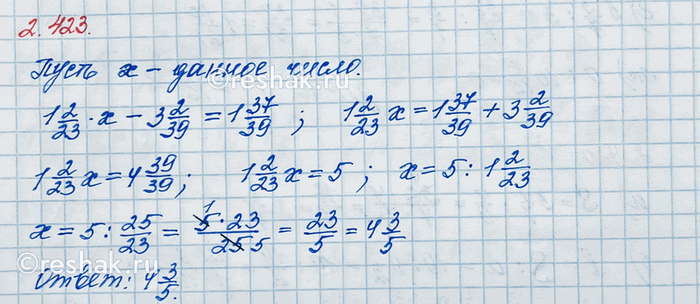 2.423.
Пусть x – данное число.
1 2/23 · x − 3 2/39 = 1 37/39 ; 1 2/23 x = 1 37/39 + 3 2/39
1 2/23 x = 4 39/39 ; 1 2/23 x = 5 ; x = 5 : 1 2/23
x = 5 : 25/23 = 5¹ · 23 / 25 5 = 23/5 = 4 3/5
Ответ: 4 3/5.
©reshak.ru
©reshak.ru